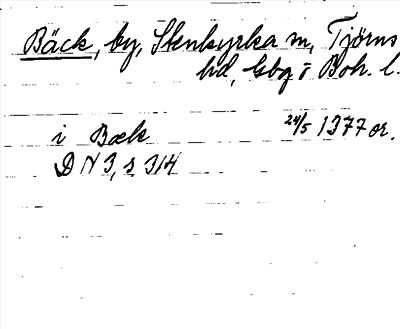 Bäck, by, Stenkyrka sn, Tjörns
hd, Gbg o Boh. l.
i Bæk 24/5 1377 or.
DN 3, s 314